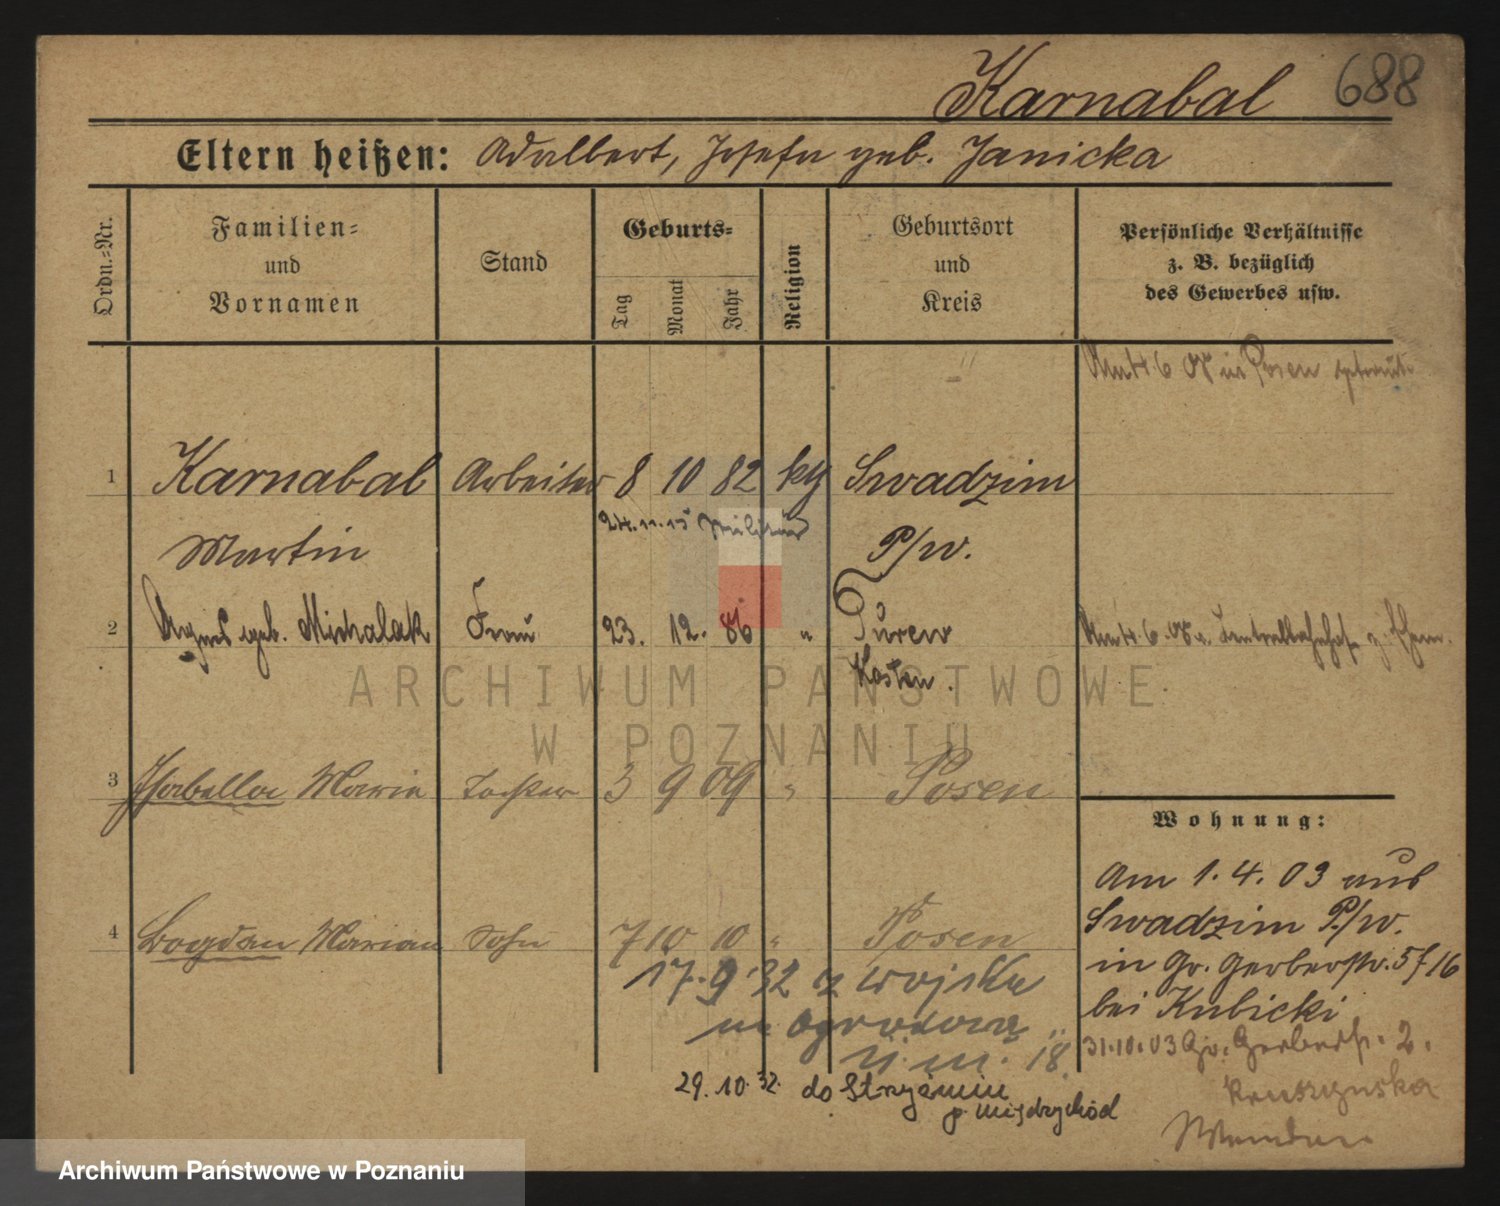 Karnabal 688
Eltern heißen: Adalbert, Josefa geb. Janicka
Ordn.-Nr.
Familien-
und
Vornamen
Stand
Geburts-
Tag
Monat
Jahr
Religion
Geburtsort
und
Kreis
Persönliche Verhältnisse
z. B. bezüglich
des Gewerbes usw.
in Posen getraut.
1 Karnabal Arbeiter 8 10 82 kth Swadzim
24.11.15 Militär
Martin P/w.
2 Agnes geb. Michalak Frau 23. 12. 86 " Turew
Kosten.
3 Isabella Marie Tochter 3 9 09 " Posen
4 Bogdan Marian Sohn 7 10 10 " Posen
17.9.32 z wojska
na Ogrodową
m. 18.
29.10.32. do
p. Międzychód
Wohnung:
Am 1.4.03 aus
Swadzim P./w.
in Gr. Gerberstr. 57 16
bei Kubicki
31.10.03 Gr. Gerberstr. 2.
ARCHIWUM PAŃSTWOWE
W POZNANIU
Archiwum Państwowe w Poznaniu